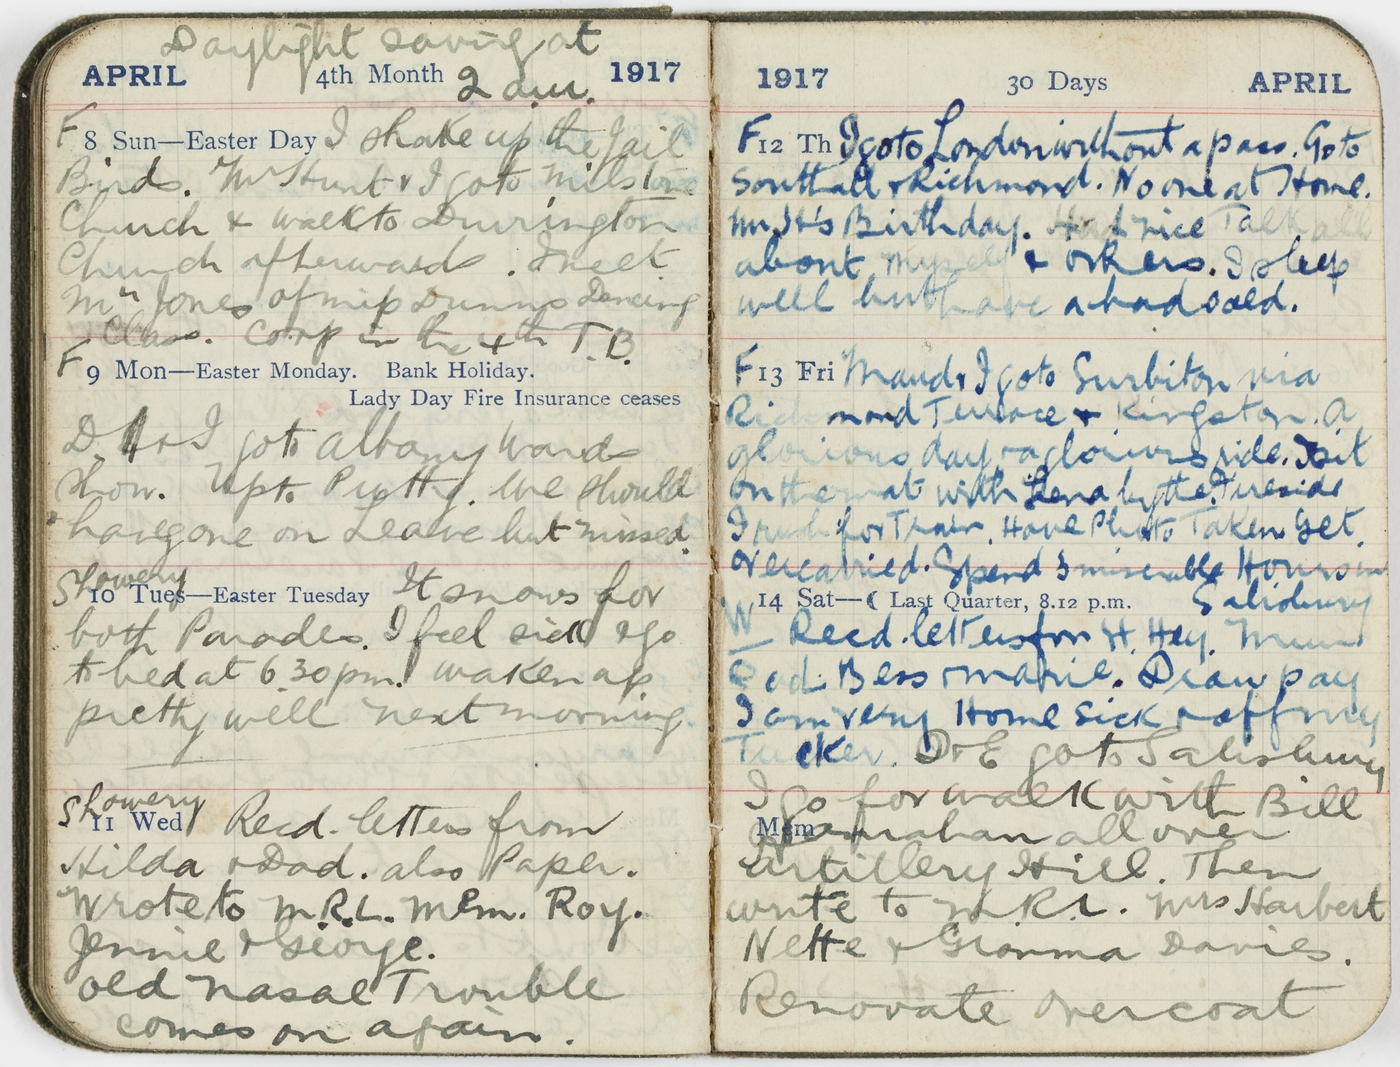 Daylight saving at
APRIL 4th Month 2 a.m. 1917
F 8 Sun—Easter Day I shake up the Jail
Birds. Mr Hunt & I go to Milstone
Church & walk to Durrington
Church afterwards. I meet
Mr Jones of Dunns Dancing
Class. Corp in the 4th T.B.
F 9 Mon—Easter Monday. Bank Holiday.
Lady Day Fire Insurance ceases
D. H & I go to Albany Wards
Show. Upto Putty. We should
have gone on Leave but missed.
Showery
10 Tues—Easter Tuesday It snows for
both Parades. I feel sick & go
to bed at 6.30 pm. waken up
pretty well next morning.
Showery
11 Wed Recd. letters from
Hilda & Dad. also Paper.
Wrote to M.R.L. Mem. Roy.
Jennie & George.
old nasal Trouble
comes on again.
1917 30 Days APRIL
F 12 Th I go to London without a pass. Go to
Southall & Richmond. No one at Home.
Mr H's Birthday. Had nice Talk all
about myself & others. I sleep
well but have a bad cold.
F 13 Fri Maud & I go to Surbiton via
Richmond Terrace & Kingston. A
glorious day & a glorious ride. I sit
on the mat with Lena by the Fireside
I rush for Train. Have Photo Taken. Get
overcarried. Spend 3 miserable Hours in
Salisbury
14 Sat—☾ Last Quarter, 8.12 p.m.
W Recd. letters from H. Hey. Mum
Dad. Bess & Marie. Draw pay
I am very Home Sick & off my
Tucker. D & E go to Salisbury
I go for walk with Bill
Mem all over
Artillery Hill. Then
write to M.R.L. Mrs Harbert
Nette & Gramma Davies.
Renovate Overcoat